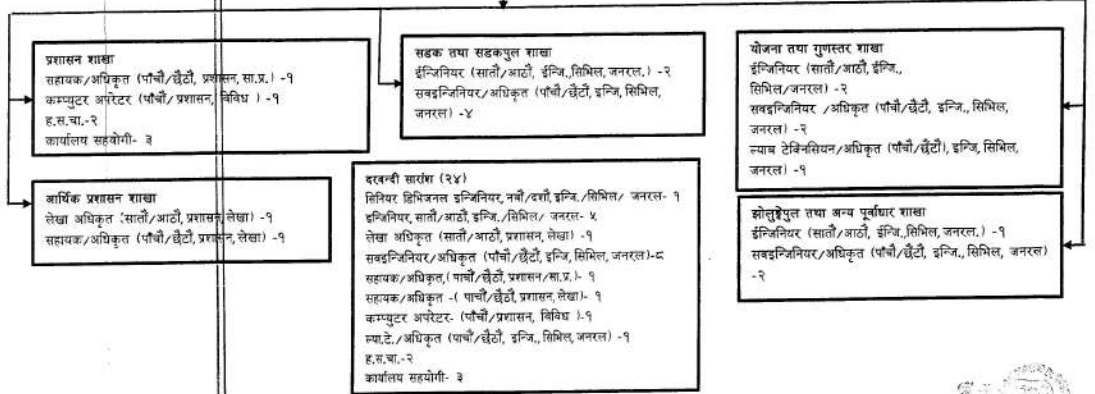 प्रशासन शाखा
सहायक/अधिकृत (पाँचौ/छैठौ, प्रशासन, सा.प्र.) -१
कम्प्युटर अपरेटर (पाँचौ/प्रशासन, विविध ) -१
ह.स.चा.-२
कार्यालय सहयोगी- ३
आर्थिक प्रशासन शाखा
लेखा अधिकृत (सातौं/आठौ, प्रशासन, लेखा) -१
सहायक/अधिकृत (पाँचौ/छैठौ, प्रशासन, लेखा) -१
सडक तथा सडकपुल शाखा
ईन्जिनियर (सातौं/आठौ, ईन्जि.,सिभिल, जनरल.) -२
सवइन्जिनियर/अधिकृत (पाँचौ/छैटौ, इन्जि, सिभिल,
जनरल) -४
दरवन्दी सारांश (२४)
सिनियर डिभिजनल इन्जिनियर, नवौं/दशौं, इन्जि./सिभिल/ जनरल- १
इन्जिनियर, सातौं/आठौ, इन्जि./सिभिल/ जनरल- ५
लेखा अधिकृत (सातौं/आठौ, प्रशासन, लेखा) -१
सवइन्जिनियर/अधिकृत (पाँचौ/छैटौ, इन्जि, सिभिल, जनरल)-८
सहायक/अधिकृत,( पाचौं/छैठौ, प्रशासन/सा.प्र.)- १
सहायक/अधिकृत -( पाचौं/छैठौ, प्रशासन, लेखा)- १
कम्प्युटर अपरेटर- (पाँचौ/प्रशासन, विविध )-१
ल्या.टे./अधिकृत (पाचौं/छैठौ, इन्जि., सिभिल, जनरल) -१
ह.स.चा.-२
कार्यालय सहयोगी- ३
योजना तथा गुणस्तर शाखा
ईन्जिनियर (सातौं/आठौ, ईन्जि.,
सिभिल/जनरल) -२
सवइन्जिनियर /अधिकृत (पाँचौ/छैटौ, इन्जि., सिभिल,
जनरल) -२
ल्याब टेक्निसियन/अधिकृत (पाँचौ/छैटौ), इन्जि, सिभिल,
जनरल) -१
झोलुङ्गेपुल तथा अन्य पूर्वाधार शाखा
ईन्जिनियर (सातौं/आठौ, ईन्जि.,सिभिल, जनरल.) -१
सवइन्जिनियर/अधिकृत (पाँचौ/छैटौ, इन्जि., सिभिल, जनरल)
-२